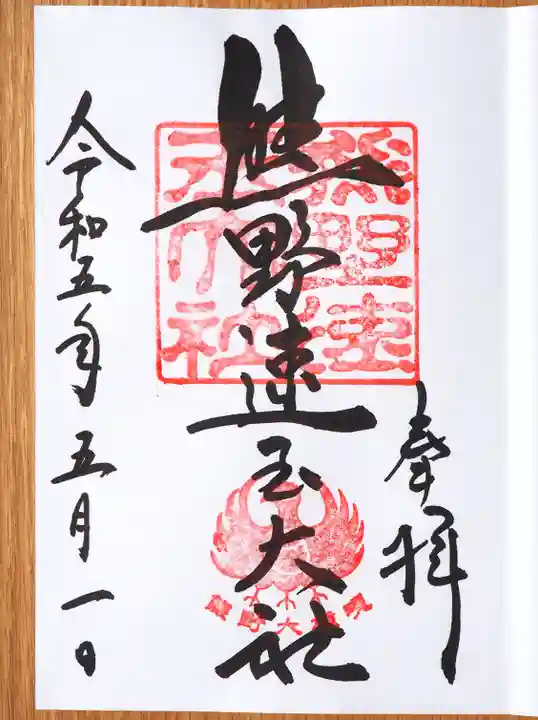 奉拝
熊野速玉大社
熊野速
玉大社
令和五年五月一日